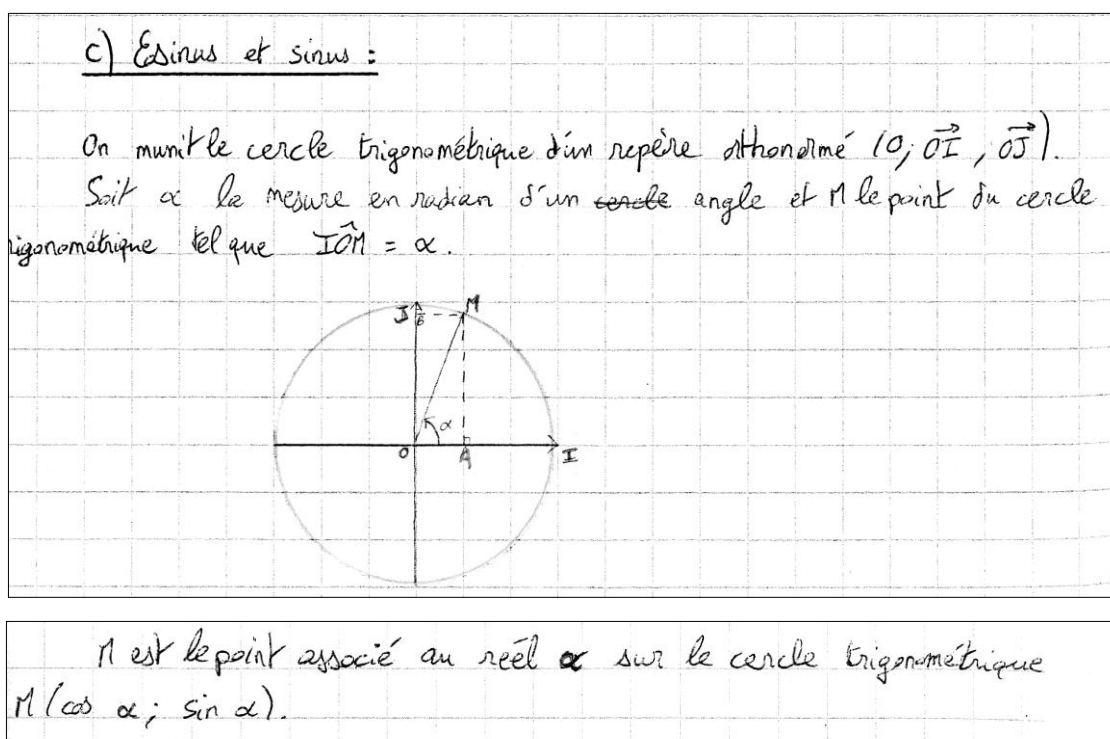 c) Cosinus et sinus :
On munit le cercle trigonométrique d'un repère orthonormé (O; \overrightarrow{OI}, \overrightarrow{OJ}).
Soit α la mesure en radian d'un ~~cercle~~ angle et M le point du cercle
rigonométrique tel que \widehat{IOM} = α.
J B M
α
O A I
M est le point associé au réel α sur le cercle trigonométrique
M(cos α; sin α).